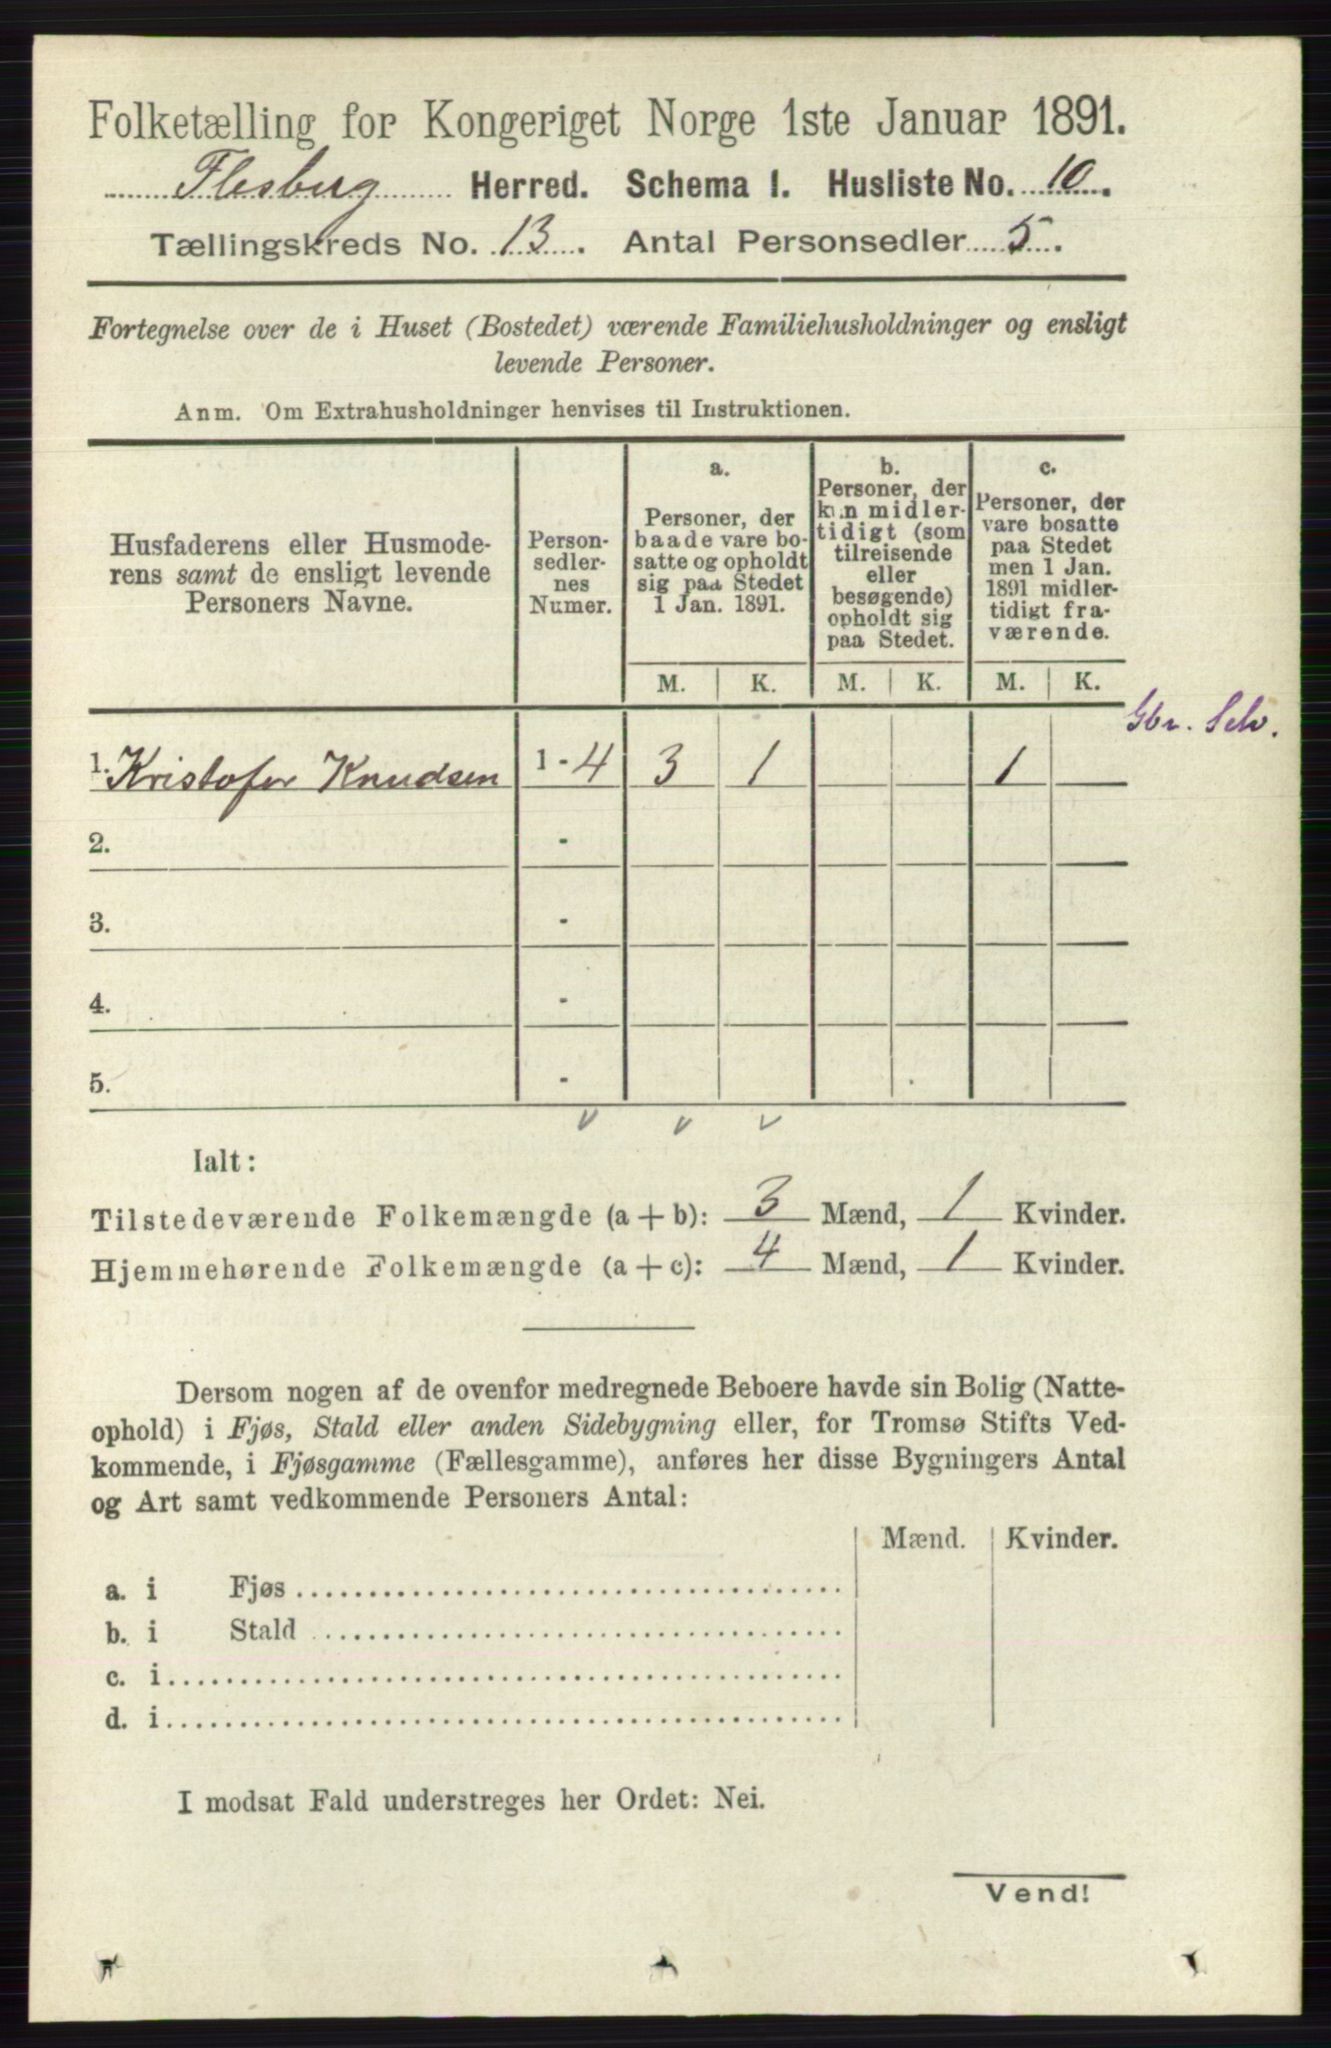 Folketælling for Kongeriget Norge 1ste Januar 1891.
Flesberg Herred. Schema I. Husliste No. 10.
Tællingskreds No. 13. Antal Personsedler 5.
Fortegnelse over de i Huset (Bostedet) værende Familiehusholdninger og ensligt
levende Personer.
Anm. Om Extrahusholdninger henvises til Instruktionen.
Husfaderens eller Husmode-
rens samt de ensligt levende
Personers Navne.
Person-
sedler-
nes
Numer.
a.
Personer, der
baade vare bo-
satte og opholdt
sig paa Stedet
1 Jan. 1891.
b.
Personer, der
kun midler-
tidigt (som
tilreisende
eller
besøgende)
opholdt sig
paa Stedet.
c.
Personer, der
vare bosatte
paa Stedet
men 1 Jan.
1891 midler-
tidigt fra-
værende.
M. K. M. K. M. K.
Gbr. Selv.
1. Kristofer Knudsen 1 - 4 3 1 1
2. -
3. -
4. -
5. -
Ialt:
Tilstedeværende Folkemængde (a + b): 3 Mænd, 1 Kvinder.
Hjemmehørende Folkemængde (a + c): 4 Mænd, 1 Kvinder.
Dersom nogen af de ovenfor medregnede Beboere havde sin Bolig (Natte-
ophold) i Fjøs, Stald eller anden Sidebygning eller, for Tromsø Stifts Ved-
kommende, i Fjøsgamme (Fællesgamme), anføres her disse Bygningers Antal
og Art samt vedkommende Personers Antal:
Mænd. Kvinder.
a. i Fjøs
b. i Stald
c. i
d. i
I modsat Fald understreges her Ordet: Nei.
Vend!